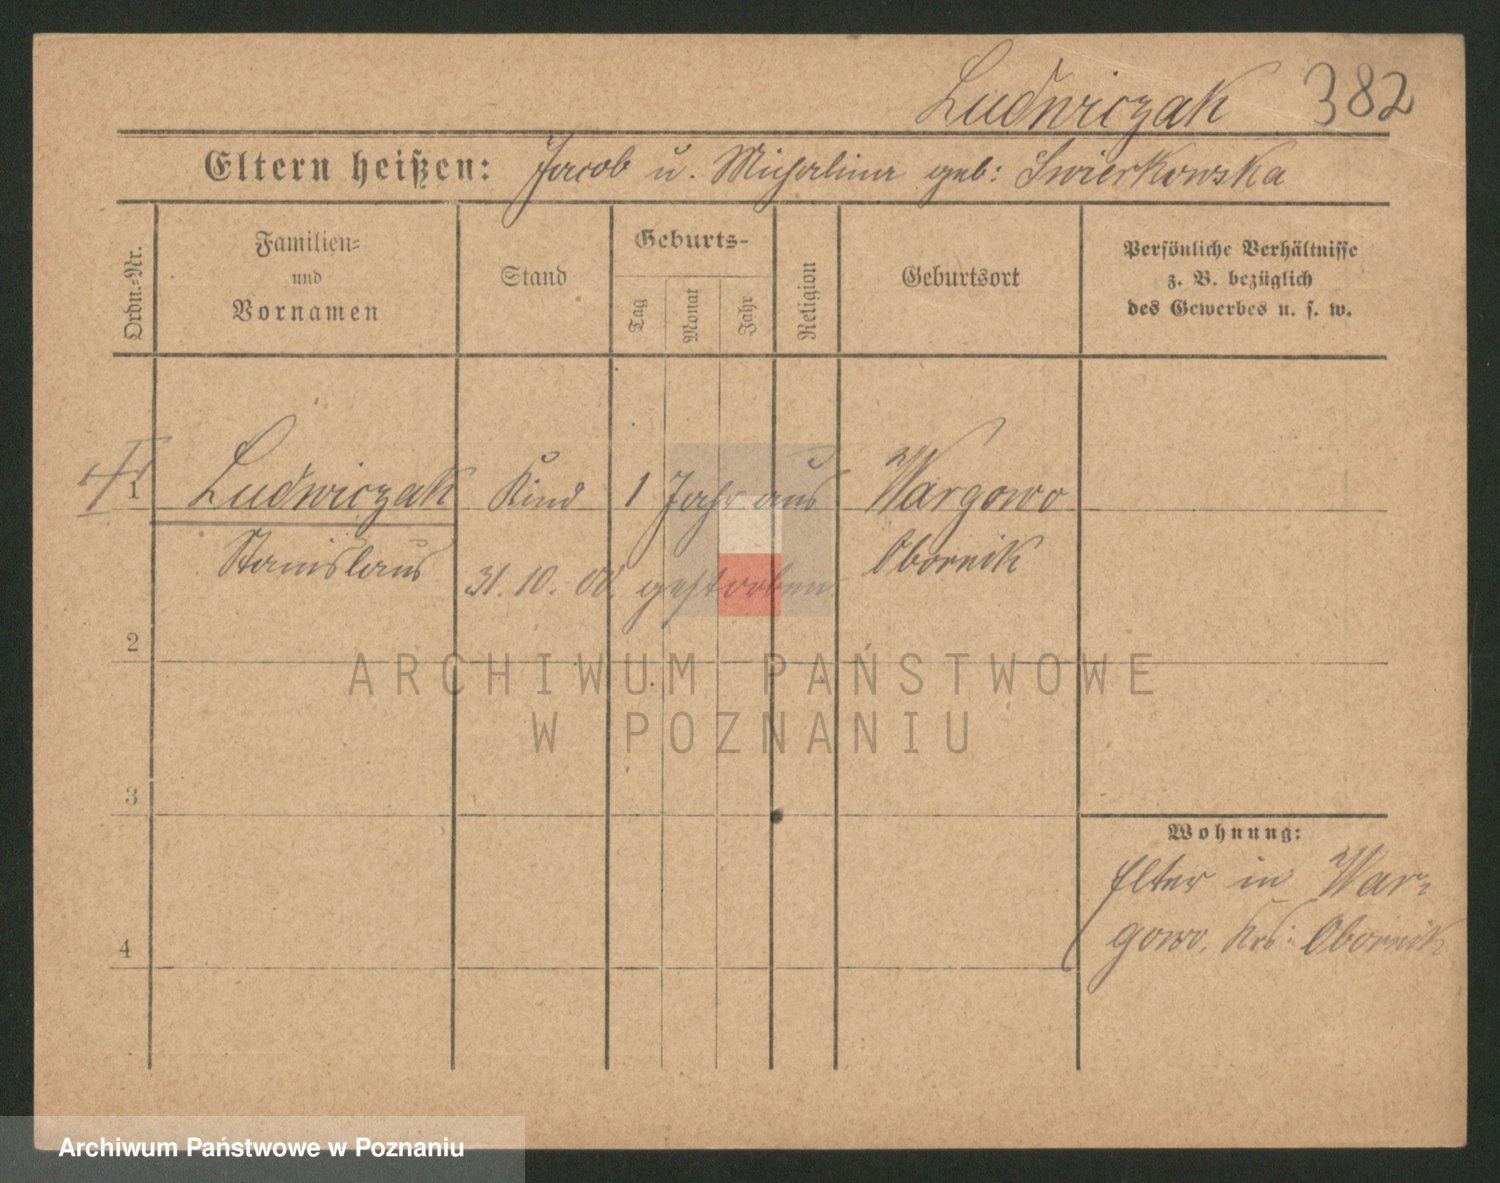 Ludwiczak 382
Eltern heißen: Jacob u. Michalina geb: Swierkowska
Ordn.-Nr.
Familien-
und
Vornamen
Stand
Geburts-
Tag
Monat
Jahr
Religion
Geburtsort
Persönliche Verhältnisse
z. B. bezüglich
des Gewerbes u. s. w.
1 Ludwiczak Kind 1 Jahr aus Wargowo
Stanislaus 31. 10. 00 gestorben Obornik
2
ARCHIWUM PAŃSTWOWE
W POZNANIU
3
Wohnung:
Elter in War-
gowo, Krs: Obornik
4
Archiwum Państwowe w Poznaniu